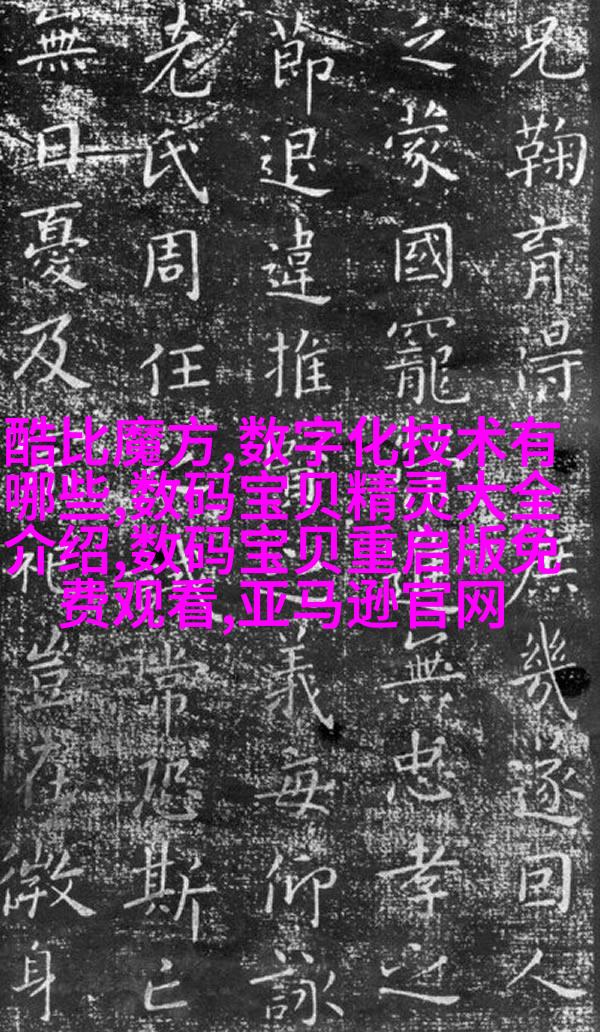 兄鞠育得幾遂回人
之蒙國寵無忠孝之
節退違推義每仰詠
老氏周任常恐斯亡
無日憂及豈在微身
酷比魔方,数字化技术有
哪些,数码宝贝精灵大全
介绍,数码宝贝重启版免
费观看,亚马逊官网